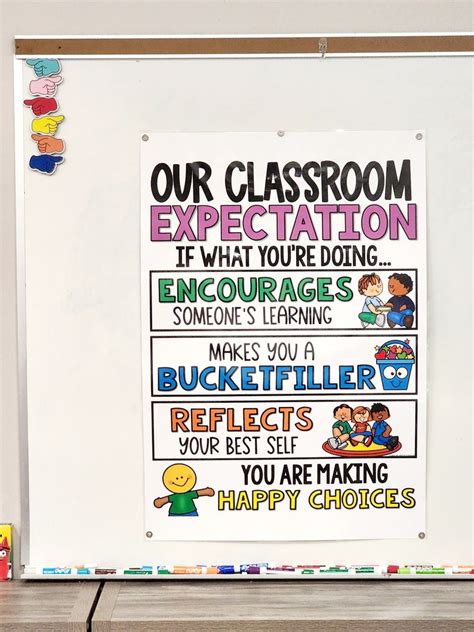 OUR CLASSROOM
EXPECTATION
IF WHAT YOU'RE DOING...
ENCOURAGES
SOMEONE'S LEARNING
MAKES YOU A
BUCKETFILLER
REFLECTS
YOUR BEST SELF
YOU ARE MAKING
HAPPY CHOICES